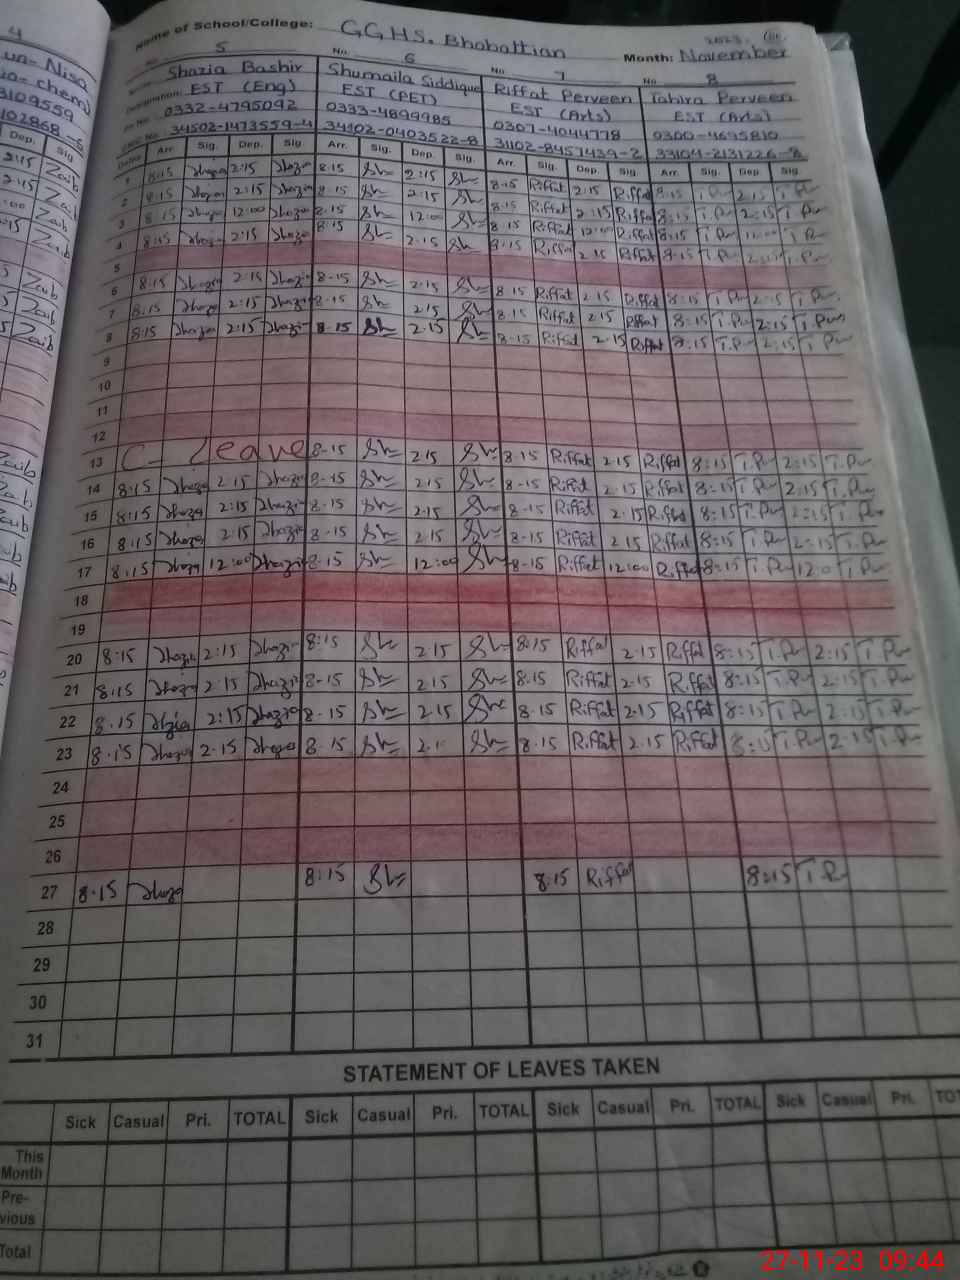 Name of School/College: GGHS. Bhobattian Month: November 2023
No. 5 No. 6 No. 7 No. 8
Shazia Bashir Shumaila Siddique Riffat Perveen Tahira Perveen
Designation: EST (Eng) EST (PET) EST (Arts) EST (Arts)
0332-4795092 0333-4899985 0307-4044778 0300-4695810
34502-1473559-4 34102-0403522-8 31102-8457439-2 33104-2131226-8
Dates Arr. Sig. Dep. Sig. Arr. Sig. Dep. Sig. Arr. Sig. Dep. Sig. Arr. Sig. Dep. Sig.
1 8:15 Shazia 2:15 Shazia 8.15 Sh 2:15 Sh 8.15 Riffat 2.15 Riffat 8:15 T.Per 2:15 T.Per
2 8:15 Shazia 2:15 Shazia 8.15 Sh 2.15 Sh 8.15 Riffat 2:15 Riffat 8:15 T.Per 2:15 T.Per
3 8:15 Shazia 12:00 Shazia 8.15 Sh 12:00 Sh 8.15 Riffat 12:00 Riffat 8:15 T.Per 12:00 T.Per
4 8:15 Shazia 2:15 Shazia 8:15 Sh 2.15 Sh 8:15 Riffat 2.15 Riffat 8:15 T.Per 2:15 T.Per
5
6 8:15 Shazia 2:15 Shazia 8-15 Sh 2.15 Sh 8.15 Riffat 2.15 Riffat 8:15 T.Per 2:15 T.Per
7 8:15 Shazia 2:15 Shazia 8-15 Sh 2.15 Sh 8.15 Riffat 2.15 Riffat 8:15 T.Per 2:15 T.Per
8 8:15 Shazia 2:15 Shazia 8.15 Sh 2.15 Sh 8-15 Riffat 2.15 Riffat 8:15 T.Per 2:15 T.Per
9
10
11
12
13 C- Leave 8-15 Sh 2.15 Sh 8-15 Riffat 2.15 Riffat 8:15 T.Per 2:15 T.Per
14 8:15 Shazia 2:15 Shazia 8-15 Sh 2.15 Sh 8-15 Riffat 2.15 Riffat 8:15 T.Per 2:15 T.Per
15 8:15 Shazia 2:15 Shazia 8-15 Sh 2.15 Sh 8-15 Riffat 2.15 Riffat 8:15 T.Per 2:15 T.Per
16 8:15 Shazia 2:15 Shazia 8-15 Sh 2.15 Sh 8-15 Riffat 2.15 Riffat 8:15 T.Per 2:15 T.Per
17 8:15 Shazia 12:00 Shazia 8.15 Sh 12:00 Sh 8-15 Riffat 12:00 Riffat 8:15 T.Per 12:0 T.Per
18
19
20 8:15 Shazia 2:15 Shazia 8:15 Sh 2.15 Sh 8:15 Riffat 2.15 Riffat 8:15 T.Per 2:15 T.Per
21 8:15 Shazia 2:15 Shazia 8-15 Sh 2.15 Sh 8.15 Riffat 2.15 Riffat 8:15 T.Per 2:15 T.Per
22 8.15 Shazia 2:15 Shazia 8.15 Sh 2.15 Sh 8.15 Riffat 2.15 Riffat 8:15 T.Per 2:15 T.Per
23 8.15 Shazia 2.15 Shazia 8.15 Sh 2.1 Sh 8.15 Riffat 2.15 Riffat 8:15 T.Per 2:15 T.Per
24
25
26
27 8.15 Shazia 8:15 Sh 8.15 Riffat 8:15 T.Per
28
29
30
31
STATEMENT OF LEAVES TAKEN
Sick Casual Pri. TOTAL Sick Casual Pri. TOTAL Sick Casual Pri. TOTAL Sick Casual Pri. TO
This Month
Pre-vious
Total
27-11-23 09:44